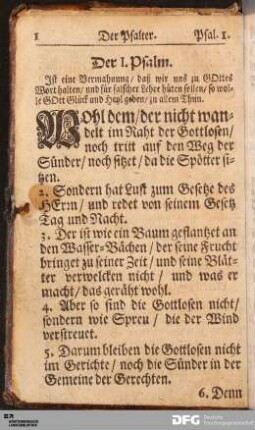 1 Der Psalter. Psal. 1.
Der I. Psalm.
Jst eine Vermahnung/ daß wir uns zu GOttes
Wort halten/ und für falscher Lehre hüten sollen/ so wol-
le GOtt Glück und Heyl geben/ zu allem Thun.
WOhl dem/ der nicht wan-
delt im Raht der Gottlosen/
noch tritt auf den Weg der
Sünder/ noch sitzet/ da die Spötter si-
tzen.
2. Sondern hat Lust zum Gesetze des
HErrn/ und redet von seinem Gesetz
Tag und Nacht.
3. Der ist wie ein Baum gepflantzet an
den Wasser-Bächen/ der seine Frucht
bringet zu seiner Zeit/ und seine Blät-
ter verwelcken nicht/ und was er
macht/ das geräht wohl.
4. Aber so sind die Gottlosen nicht/
sondern wie Spreu/ die der Wind
verstreuet.
5. Darum bleiben die Gottlosen nicht
im Gerichte/ noch die Sünder in der
Gemeine der Gerechten.
6. Denn
DFG Deutsche
Forschungsgemeinschaft